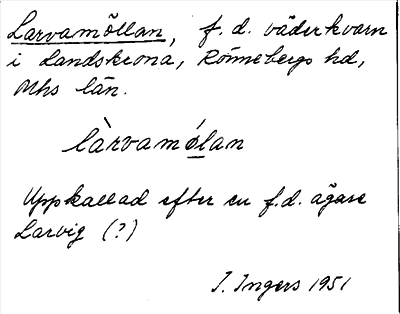 Larvamöllan, f. d. väderkvarn
i Landskrona, Rönnebergs hd,
Mhs län.
làrvamólan
Uppkallad efter en f.d. ägare
Larvig (?)
I. Ingers 1951